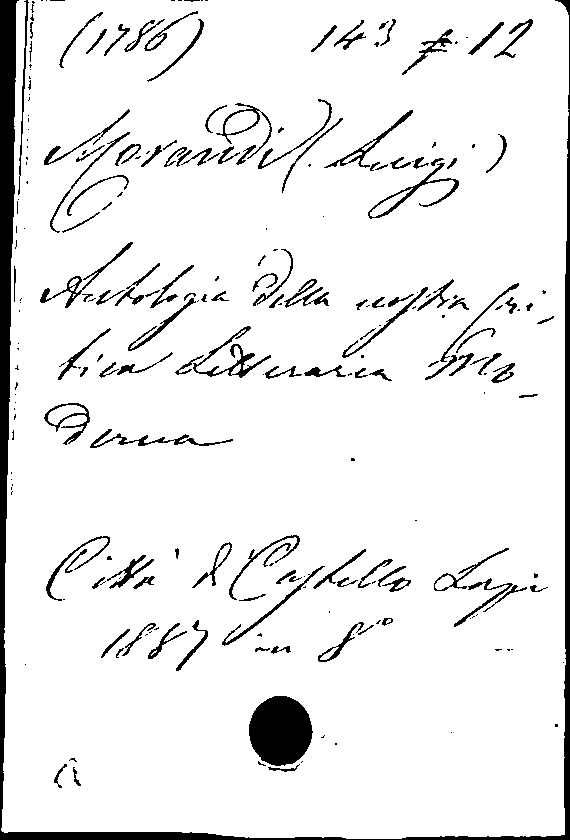 (1786) 143 F 12
Morandi (Luigi)
Antologia della nostra Cri-
tica Letteraria Mo-
derna
Città di Castello Lapi
1887 in 8°